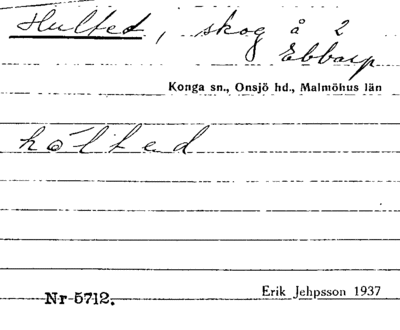 Hulted, skog å 2
Ebbarp
Konga sn., Onsjö hd., Malmöhus län
hólted
Nr 5712.
Erik Jehpsson 1937